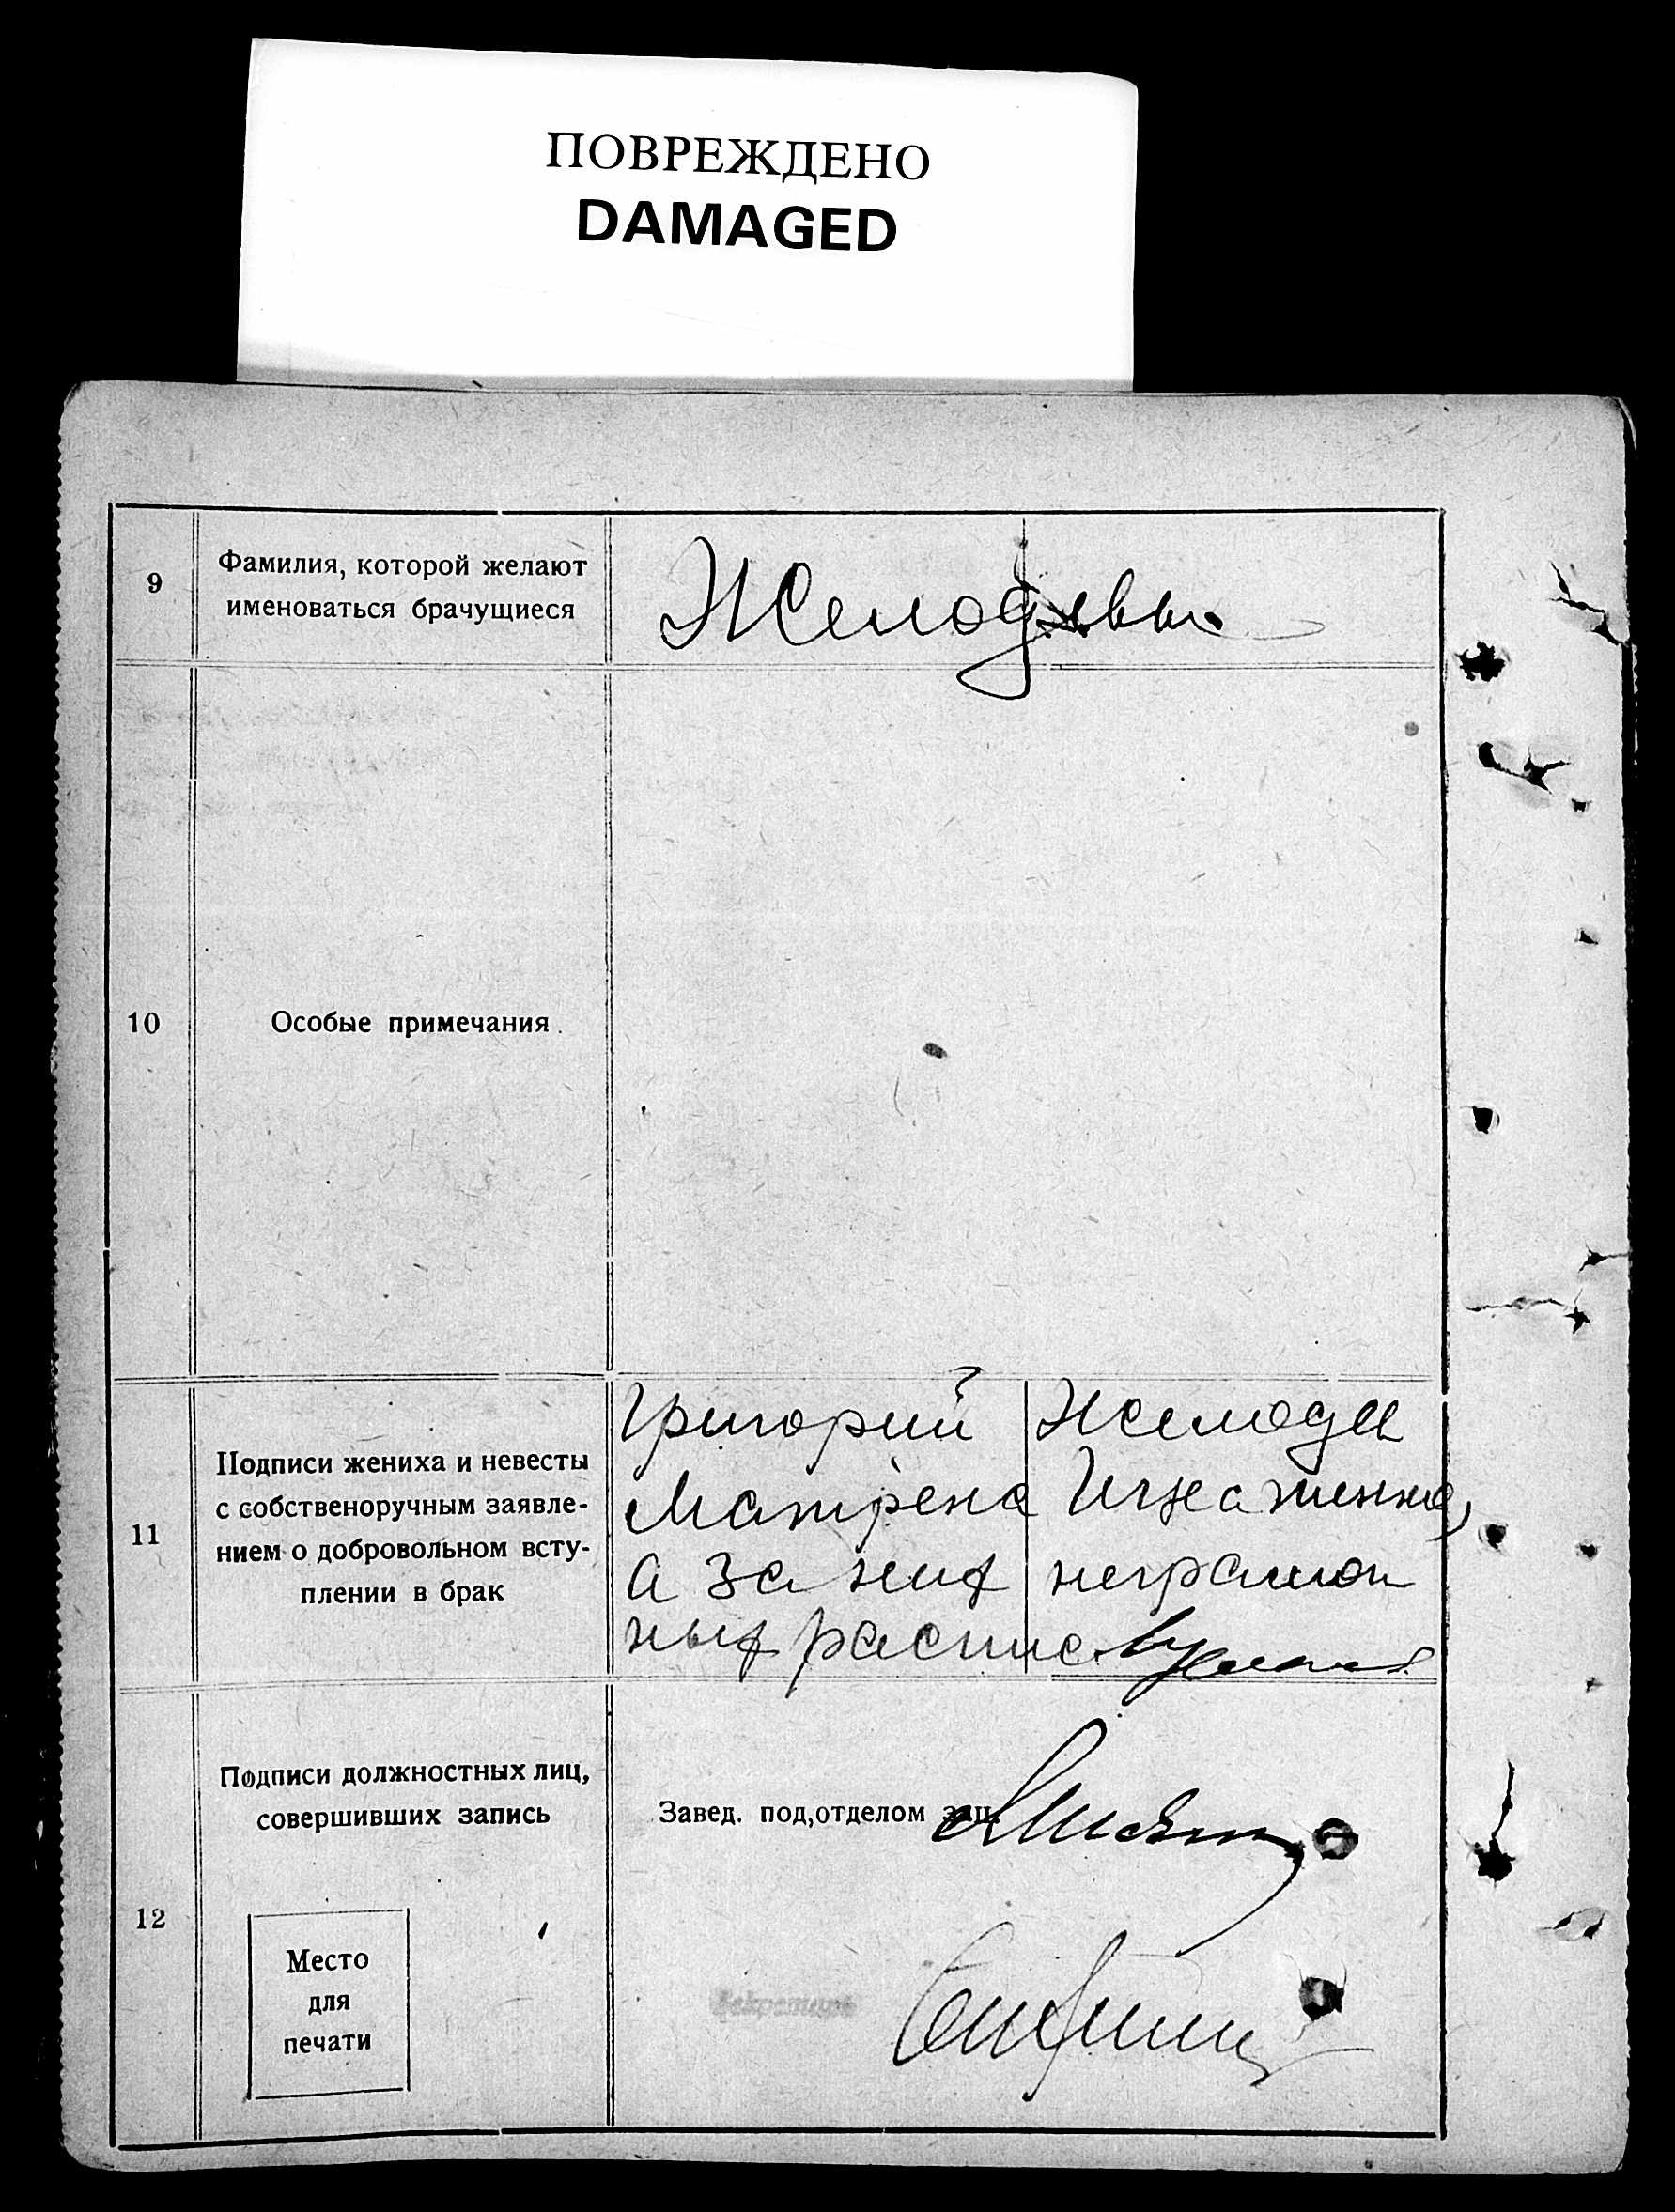 ПОВРЕЖДЕНО
DAMAGED
9
Фамилия, которой желают
именоваться брачущиеся
10
Особые примечания
11
Подписи жениха и невесты
с собственоручным заявле-
нием о добровольном всту-
плении в брак
Григорий
Матрена
а за них неграмот
ных распис.
12
Подписи должностных лиц,
совершивших запись
Завед. под,отделом зап.
Секретарь
Место
для
печати